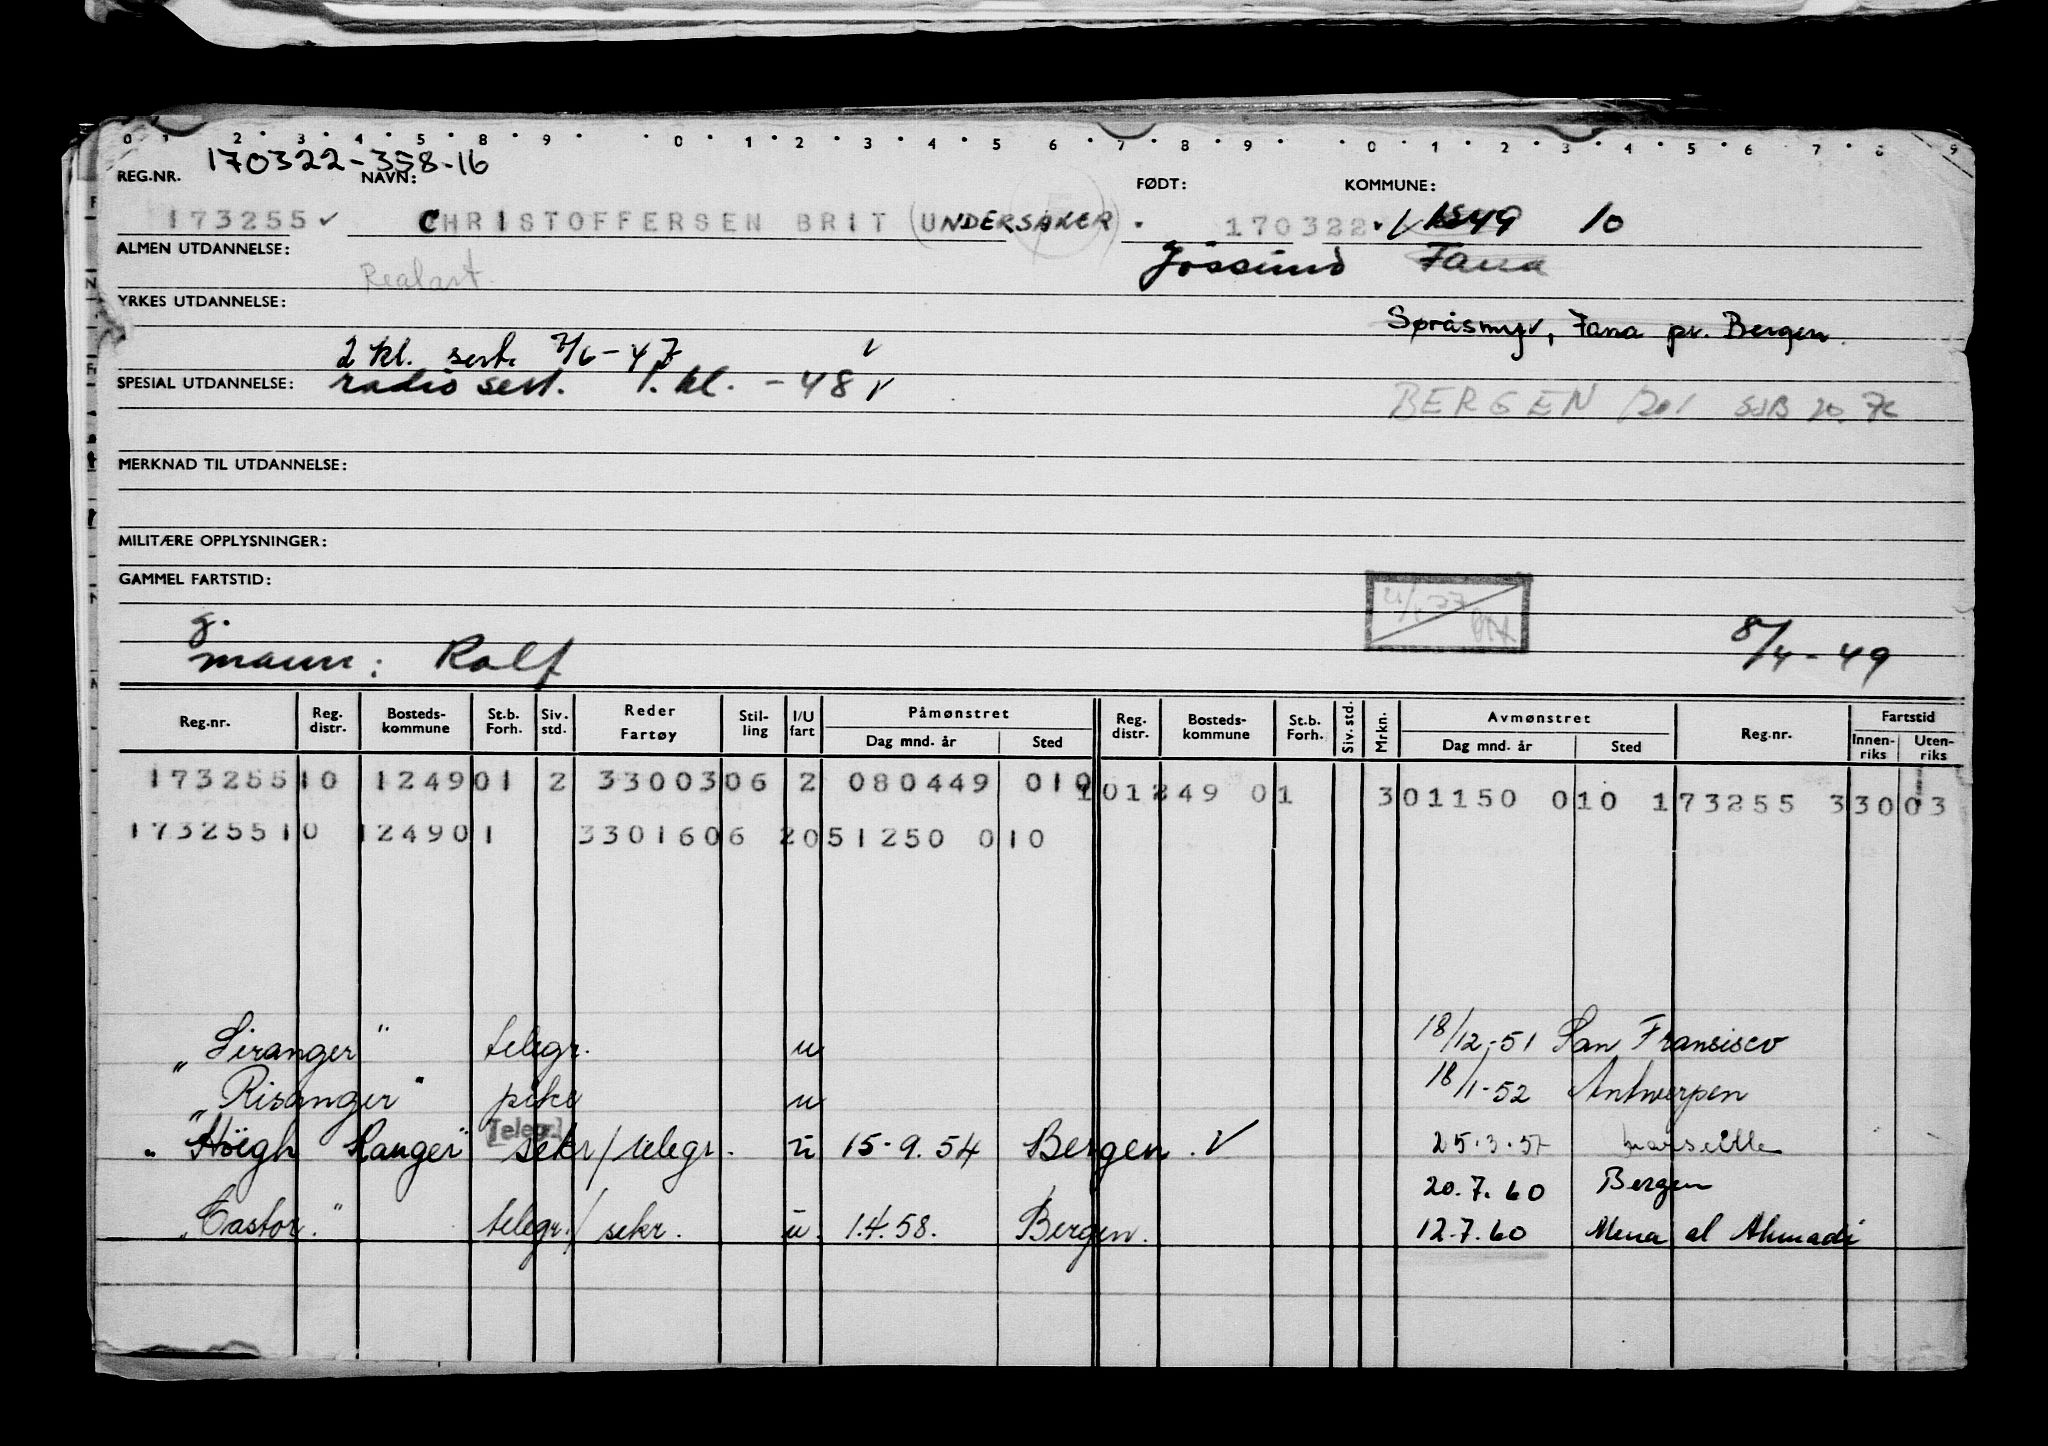 0 1 2 3 4 5 8 9 0 1 2 3 4 5 6 7 8 9 0 1 2 3 4 5 6 7 8 9
REG.NR. 170322-358-16 NAVN: FØDT: KOMMUNE:
173255 ✓ CHRISTOFFERSEN BRIT (UNDERSAKER) 170322 1249 10
ALMEN UTDANNELSE: Realart. Jøssund Fana
YRKES UTDANNELSE:
Fana pr. Bergen.
2 kl. sert. 7/6-47 ✓
SPESIAL UTDANNELSE: radio sert. 1. kl. -48 ✓
BERGEN
MERKNAD TIL UTDANNELSE:
MILITÆRE OPPLYSNINGER:
GAMMEL FARTSTID:
g.
mann: Rolf 8/4-49
Reg.nr. Reg. distr. Bosteds-kommune St.b. Forh. Siv. std. Reder Fartøy Stil-ling I/U fart Påmønstret Dag mnd. år Sted Reg. distr. Bosteds-kommune St.b. Forh. Siv. std. Mrkn. Avmønstret Dag mnd. år Sted Reg.nr. Fartstid Innen-riks Uten-riks
173255 10 1249 01 2 33003 06 2 080449 010 101249 01 301150 010 173255 33003
173255 10 1249 01 33016 06 2 051250 010
"Siranger" telegr. u 18/12-51 San Fransisco
"Risanger" u 18/1-52 Antwerpen
Telegr.
"Høegh Ranger" sekr/telegr. u 15-9.54 Bergen. ✓ 25.3.57 Marseille
20.7.60 Bergen
"Castor." telegr./sekr. u. 1.4.58. Bergen. 12.7.60 Mena al Ahmadi